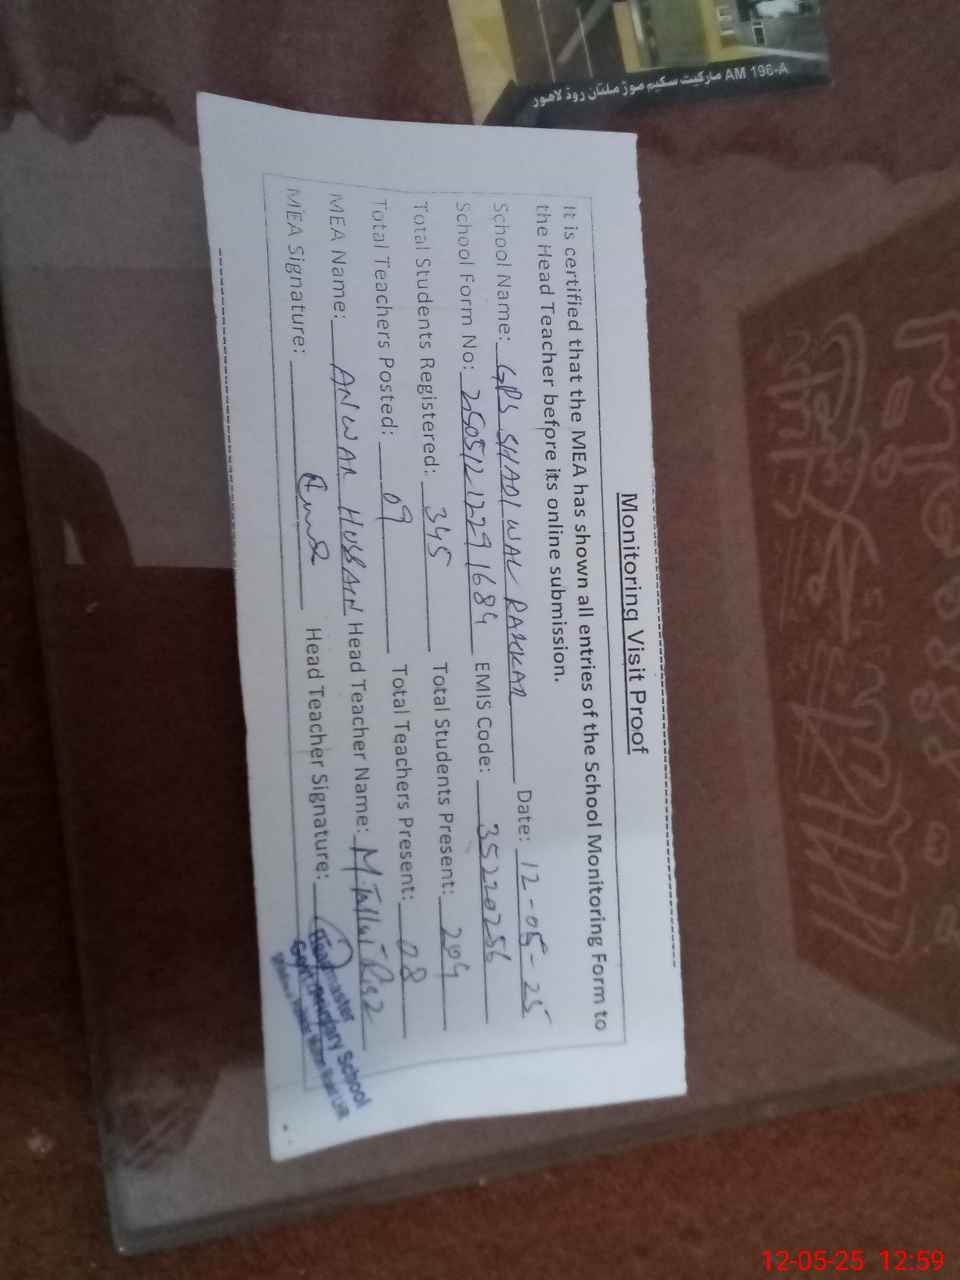 AM 196-A مارکیٹ سکیم موڑ ملتان روڈ لاہور
Monitoring Visit Proof
It is certified that the MEA has shown all entries of the School Monitoring Form to
the Head Teacher before its online submission.
School Name: GPS SHADIWAL RAKKAR Date: 12-05-25
School Form No: 25051212291684 EMIS Code: 35220256
Total Students Registered: 345 Total Students Present: 294
Total Teachers Posted: 09 Total Teachers Present: 08
MEA Name: ANWAR HUSSAIN Head Teacher Name: M.
MEA Signature: Head Teacher Signature:
Headmaster
Govt. School
12-05-25 12:59